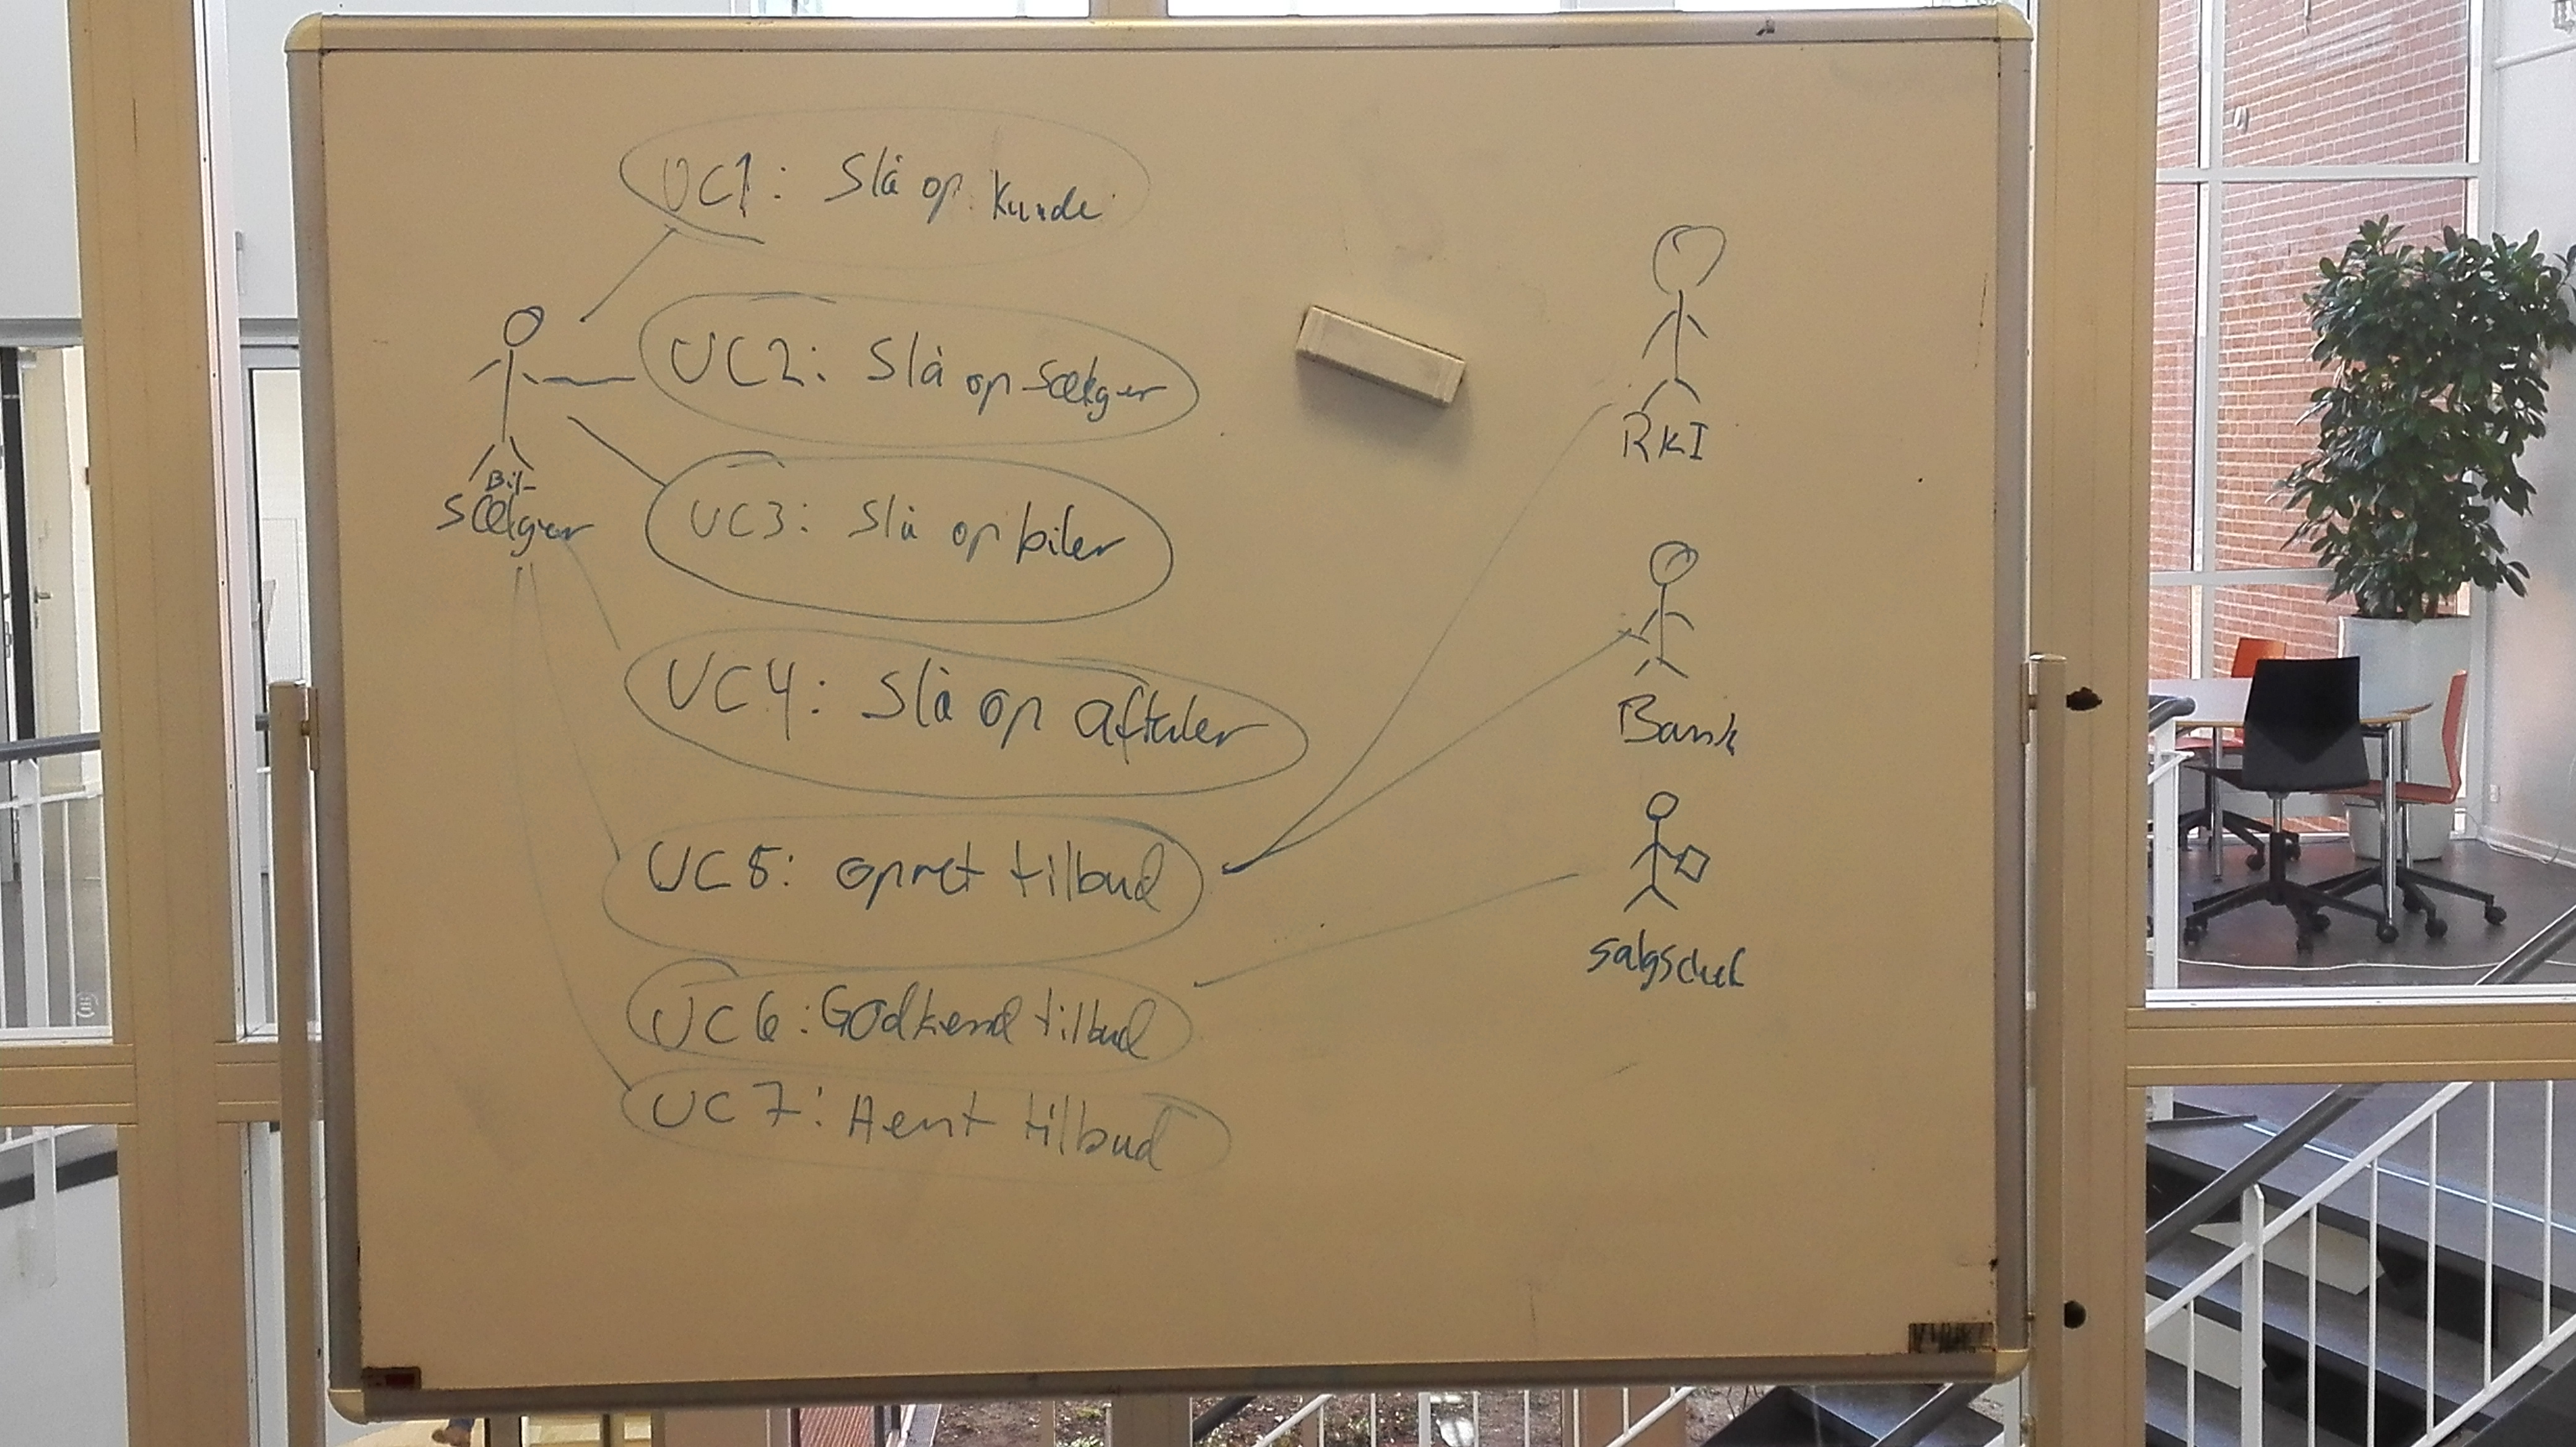 UC1: Slå op kunde
UC2: Slå op sælger
UC3: Slå op biler
UC4: Slå op aftaler
UC5: opret tilbud
UC6: Godkend tilbud
UC7: Hent tilbud
Bil-
sælger
RKI
Bank
salgschef